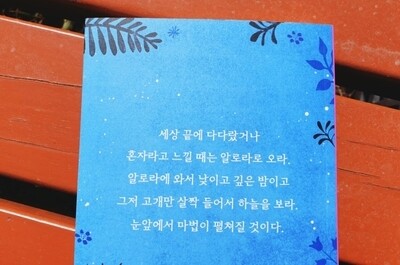 세상 끝에 다다랐거나
혼자라고 느낄 때는 알로라로 오라.
알로라에 와서 낮이고 깊은 밤이고
그저 고개만 살짝 들어서 하늘을 보라.
눈앞에서 마법이 펼쳐질 것이다.